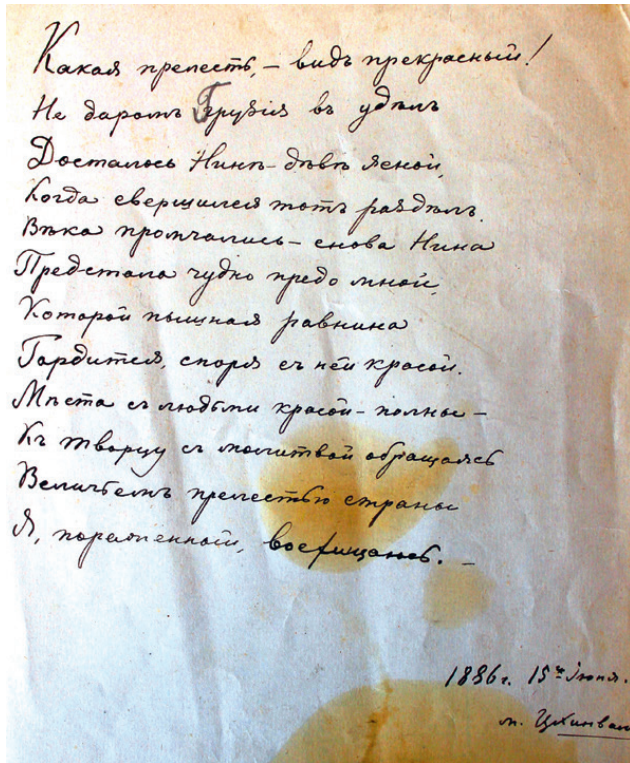 Какая прелесть, – видъ прекрасный!
Не даромъ Грузія въ удѣлъ
Досталось Нинѣ – дѣвѣ ясной,
Когда свершился тотъ раздѣлъ.
Вѣка промчались – снова Нина
Предстала чудно предо мной,
Которой пышная равнина
Гордится, споря съ ней красой.
Мѣста съ людьми красой – полны –
Къ творцу съ молитвой обращаясь
Величьемъ прелестью страны
Я, пораженный, восхищаюсь. –
1886 г. 15го Іюня.
м. Цхинвал